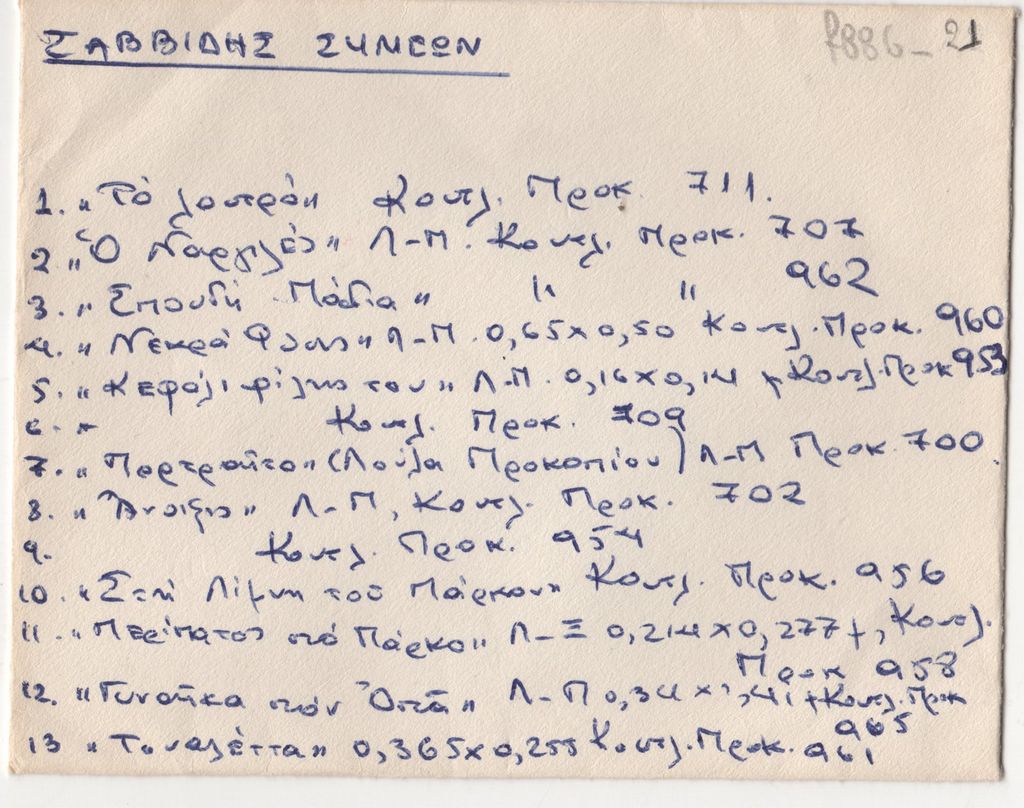 ΣΑΒΒΙΔΗΣ ΣΥΜΕΩΝ
21
1. "Τό λουτρό" Κουτλ. Προκ. 711.
2. "Ὁ Ναργιλές" Λ-Π. Κουτλ. Προκ. 707
3. "Σπουδή Μάδια" " " 962
4. "Νεκρά Φύσις" Λ-Π. 0,65x0,50 Κουτλ. Προκ. 960
5. "Κεφάλι φίλης του" Λ-Π. 0,16x0,14 Κουτλ. Προκ 953
6. " Κουτλ. Προκ. 709
7. "Πορτραῖτο" (Λούλα Προκοπίου) Λ-Π Προκ. 700.
8. "Ἄνοιξις" Λ-Π, Κουτλ. Προκ. 702
9. Κουτλ. Προκ. 954
10. "Στή Λίμνη τοῦ Πάρκου" Κουτλ. Προκ. 956
11. "Περίπατος στό Πάρκο" Λ-Ξ 0,214x0,277, Κουτλ.
Προκ 958
12. "Γυναῖκα στόν Ὀντᾶ" Λ-Π 0,34x Κουτλ. Προκ
965
13 "Τουαλέττα" 0,365x0,255 Κουτλ. Προκ. 961